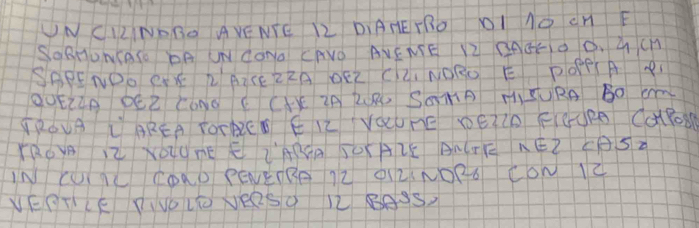 UN CILINDRO AVENTE IL DIAMETRO DI 10 CM E
SORMONTATO DA UN CONO CAVO AVENTE IL RAGGIO DI 4 CM
SAPENDO CHE L'ALTEZZA DEL CILINDRO E DOPPIA DI
QUELLA DEL CONO E CHE LA LORO SOMMA MISURA cm
TROVA L'AREA TOTALE E IL VOLUME DELLA FIGURA COMPOSTA
TROVA IL VOLUME E L'AREA TOTALE ANCHE NEL CASO
IN CUI IL CONO PENETRA IL CILINDRO CON IL
VERTICE RIVOLTO VERSO IL BASSO